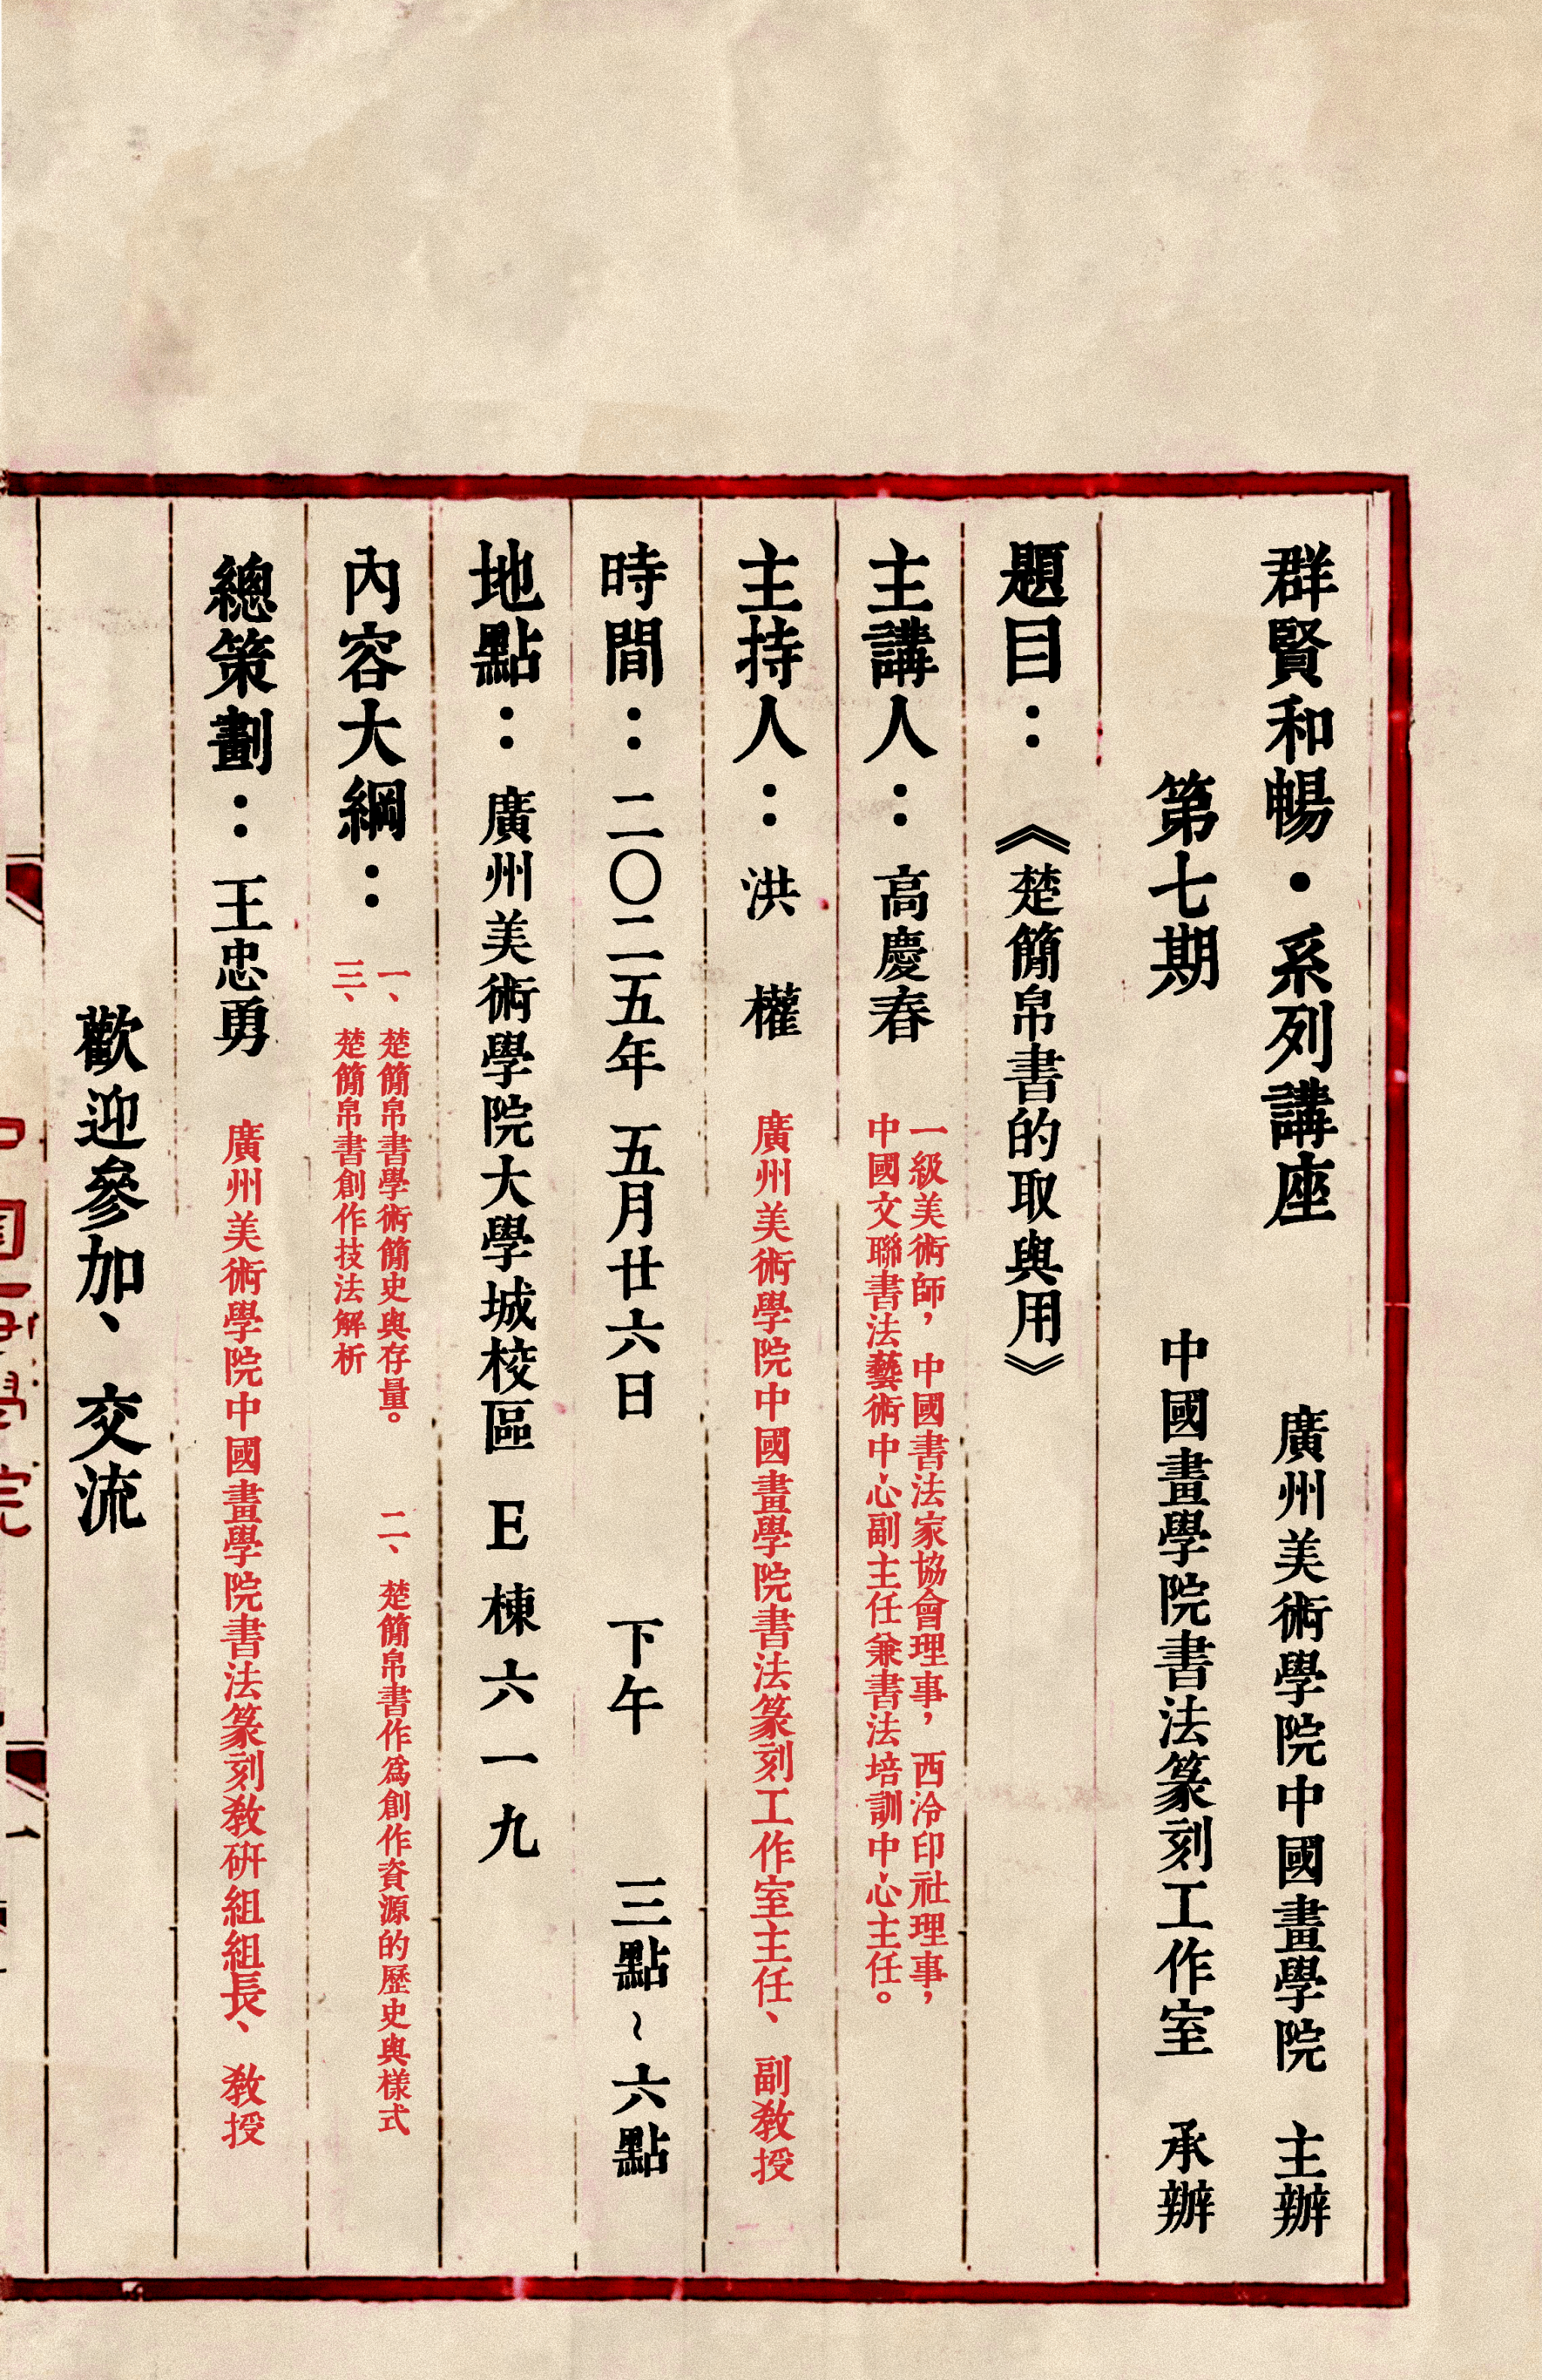 群賢和暢·系列講座　廣州美術學院中國畫學院　主辦
第七期　中國畫學院書法篆刻工作室　承辦
題目：《楚簡帛書的取與用》
主講人：高慶春
一級美術師，中國書法家協會理事，西泠印社理事，
中國文聯書法藝術中心副主任兼書法培訓中心主任。
主持人：洪　權　廣州美術學院中國畫學院書法篆刻工作室主任、副教授
時間：二〇二五年　五月廿六日　下午　三點~六點
地點：廣州美術學院大學城校區　E棟六一九
內容大綱：
一、楚簡帛書學術簡史與存量。　二、楚簡帛書作爲創作資源的歷史與樣式
三、楚簡帛書創作技法解析
總策劃：王忠勇　廣州美術學院中國畫學院書法篆刻教研組組長、教授
歡迎參加、交流